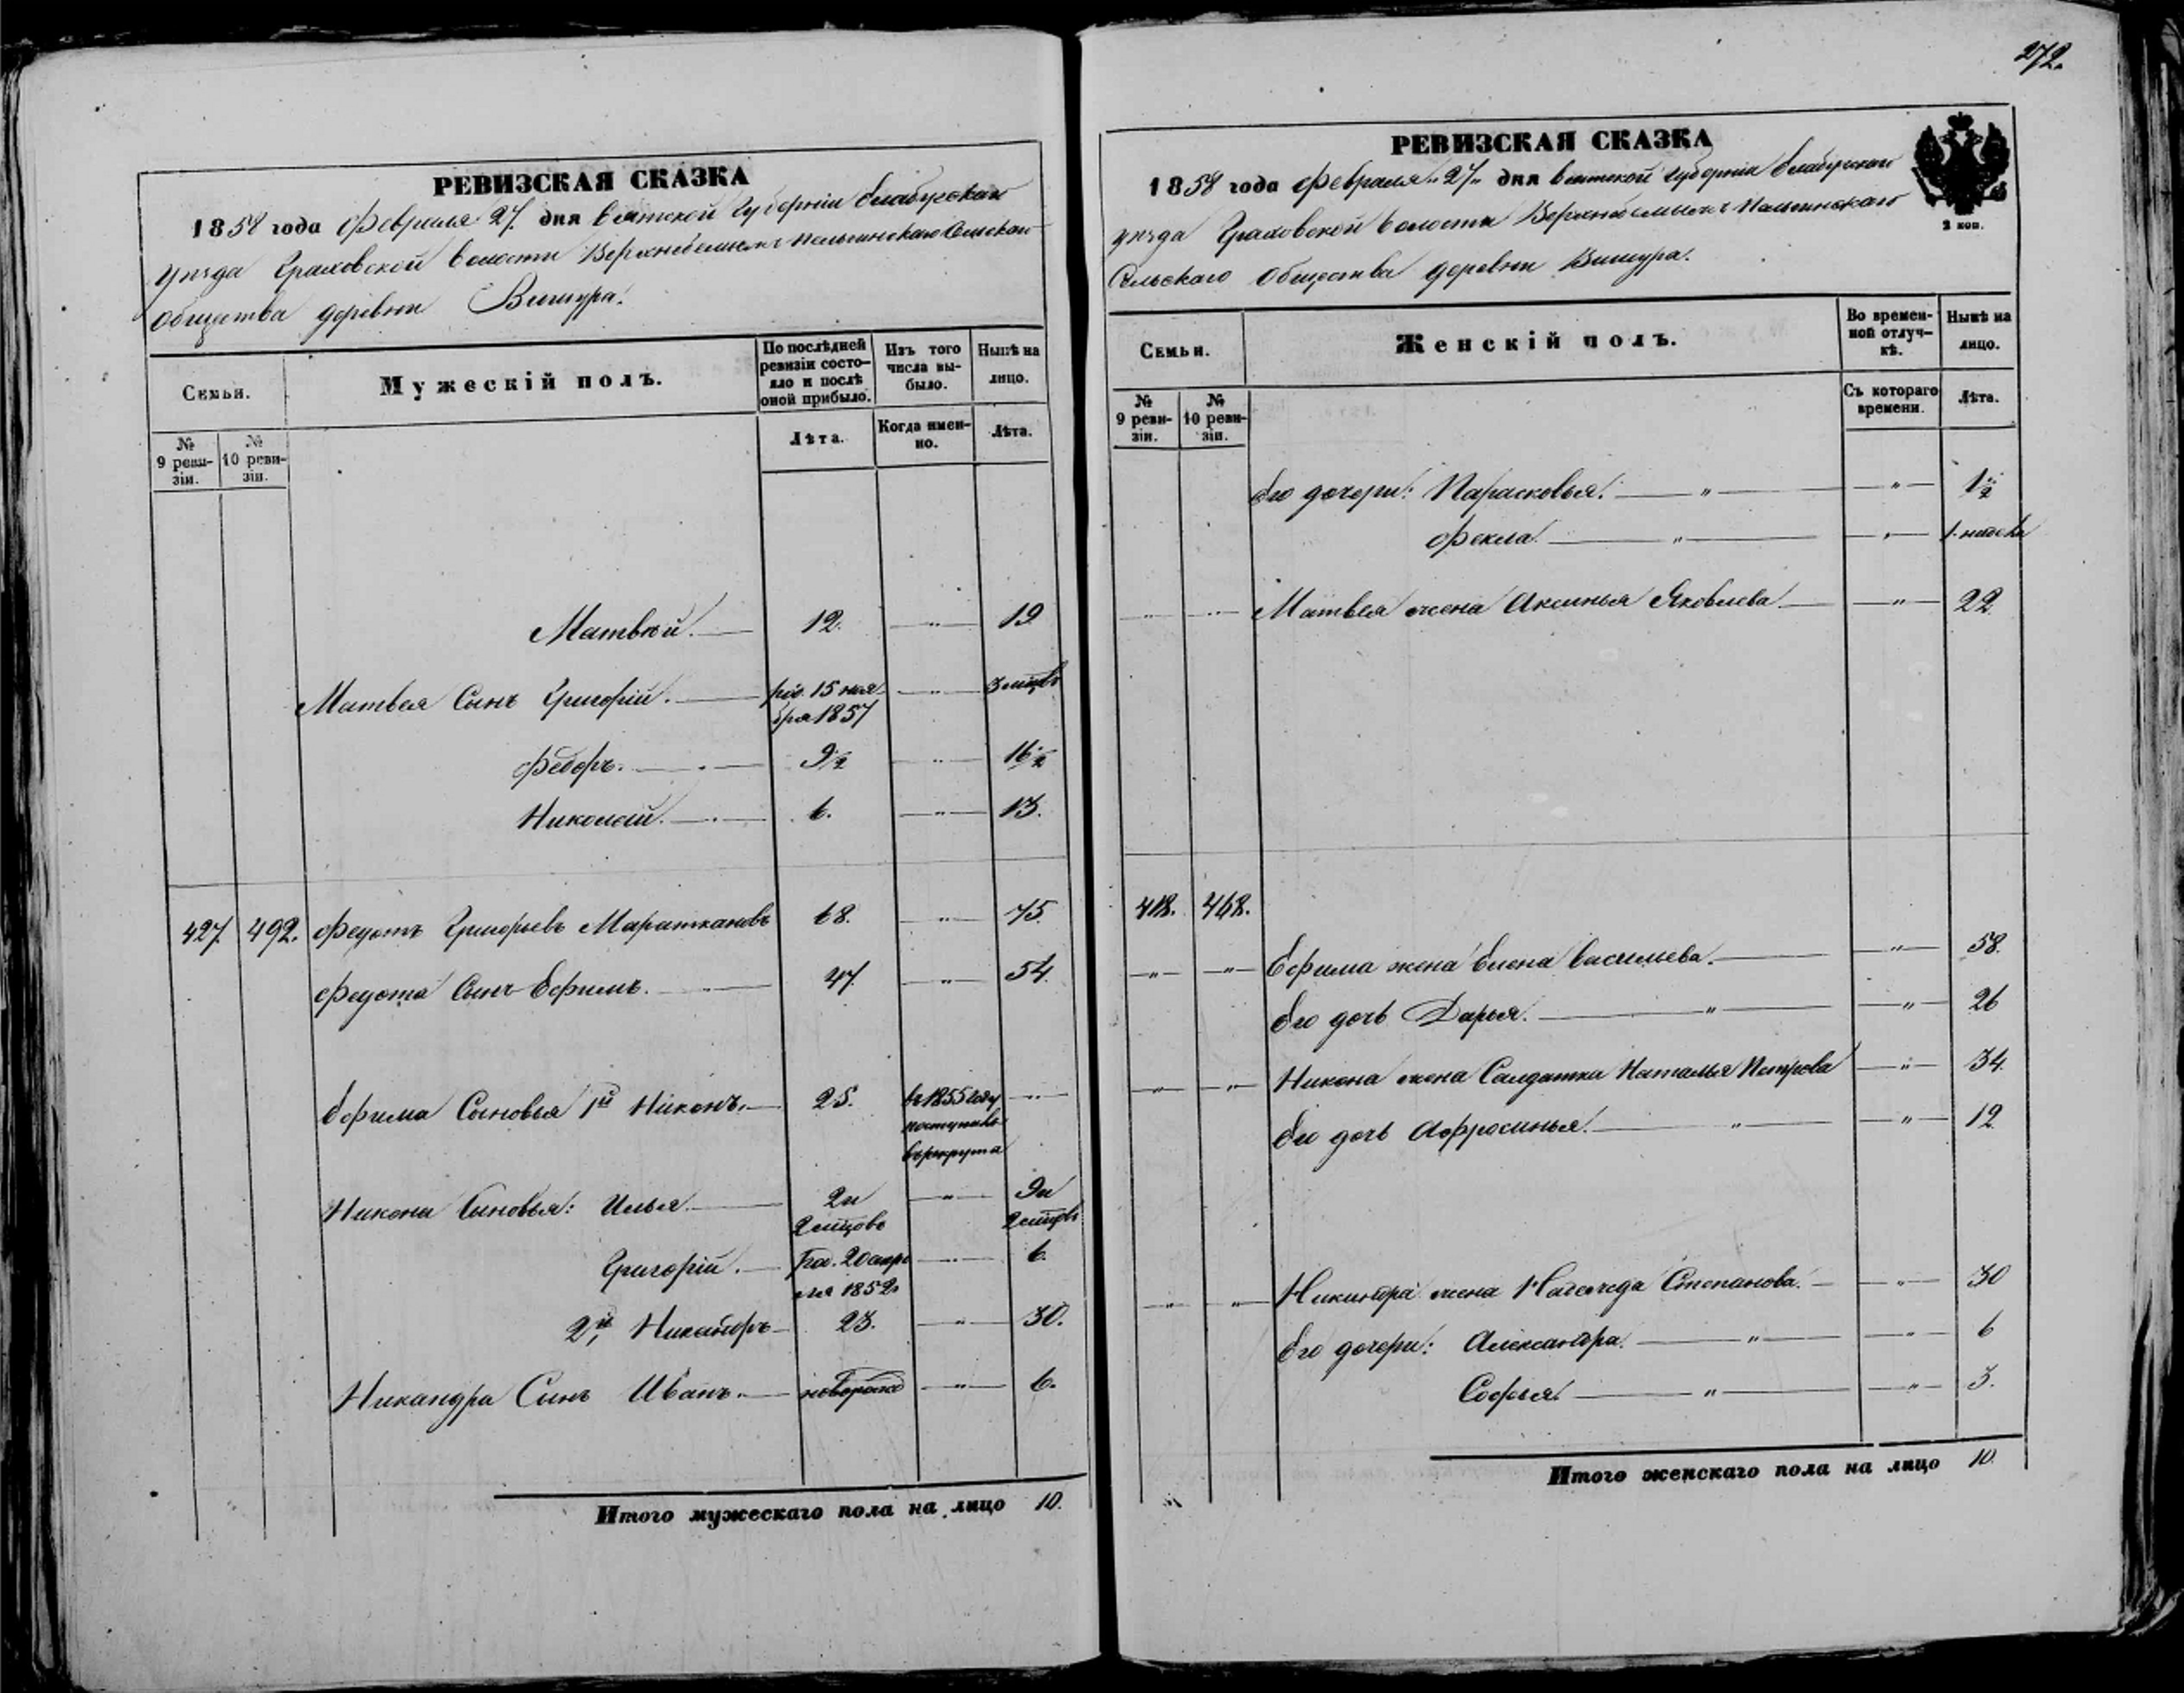 272.
РЕВИЗСКАЯ СКАЗКА
1858 года Февраля 27. дня Вятской Губерніи Елабугскаго
уѣзда Граховской волости
общества деревни Вишура.
Семьи.
Мужескій полъ.
По послѣдней ревизіи состояло и послѣ оной прибыло.
Изъ того числа выбыло.
Нынѣ на лицо.
№ 9 ревизіи.
№ 10 ревизіи.
Лѣта.
Когда именно.
Лѣта.
Матвѣй. 12. „ 19
Матвея Сынъ Григорій. рож. 15 ноября 1857 „ 3 мѣсцовъ
Федоръ. 9½ „ 16½
Николай. 6. „ 13.
427. 492. Федотъ Григорьевъ Мараткановъ 68. „ 75.
Федота Сынъ Ефимъ. 47. „ 54.
Ефима Сыновья 1й Никонъ. 25. въ 1855 году поступилъ в рекрута „
Никона Сыновья: Илья. 2 и 2 мѣсцовъ „ 9 и 2 мѣсцовъ
Григорій. Род. 20 апреля 1852 „ 6.
2й, Никандръ 23. „ 30.
Никандра Сынъ Иванъ. новорожд „ 6.
Итого мужескаго пола на лицо 10.
РЕВИЗСКАЯ СКАЗКА
1858 года Февраля „27„ дня Вятской Губерніи Елабугскаго
уѣзда Граховской волости
Сельскаго Общества деревни Вишура.
2 коп.
Семьи.
Женскій полъ.
Во временной отлучкѣ.
Нынѣ на лицо.
№ 9 ревизіи.
№ 10 ревизіи.
Съ котораго времени.
Лѣта.
Его дочери: Парасковья. „ „ 1½
Фекла. „ „
Матвея жена Аксинья Яковлева „ 22.
418. 468.
Ефима жена Елена Васильева. „ 58.
Его дочь Дарья. „ „ 26
Никона жена Салдатка Наталья Петрова „ 34.
Его дочь Афросинья. „ „ 12
Никандра жена Надежда Степанова. „ 30
Его дочери: Александра. „ „ 6
Софья. „ „ 3.
Итого женскаго пола на лицо 10.